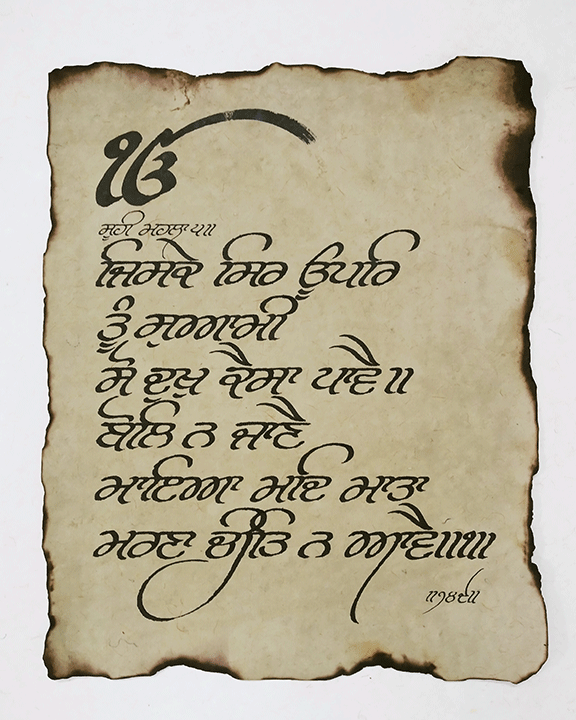 ੴ
ਸੂਹੀ ਮਹਲਾ ੫॥
ਜਿਸਕੇ ਸਿਰ ਊਪਰਿ
ਤੂੰ ਸੁਆਮੀ
ਸੋ ਦੁਖੁ ਕੈਸਾ ਪਾਵੈ॥
ਬੋਲਿ ਨ ਜਾਣੈ
ਮਾਇਆ ਮਦਿ ਮਾਤਾ
ਮਰਣਾ ਚੀਤਿ ਨ ਆਵੈ॥੧॥
॥੭੪੯॥